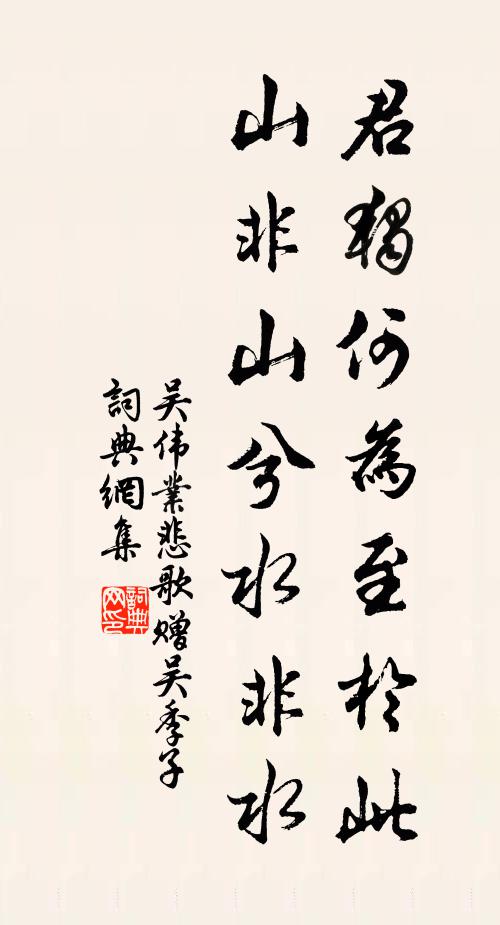 君獨何為至於此
山非山兮水非水
吴伟業悲歌赠吴季子
詞典網集
詞典网印